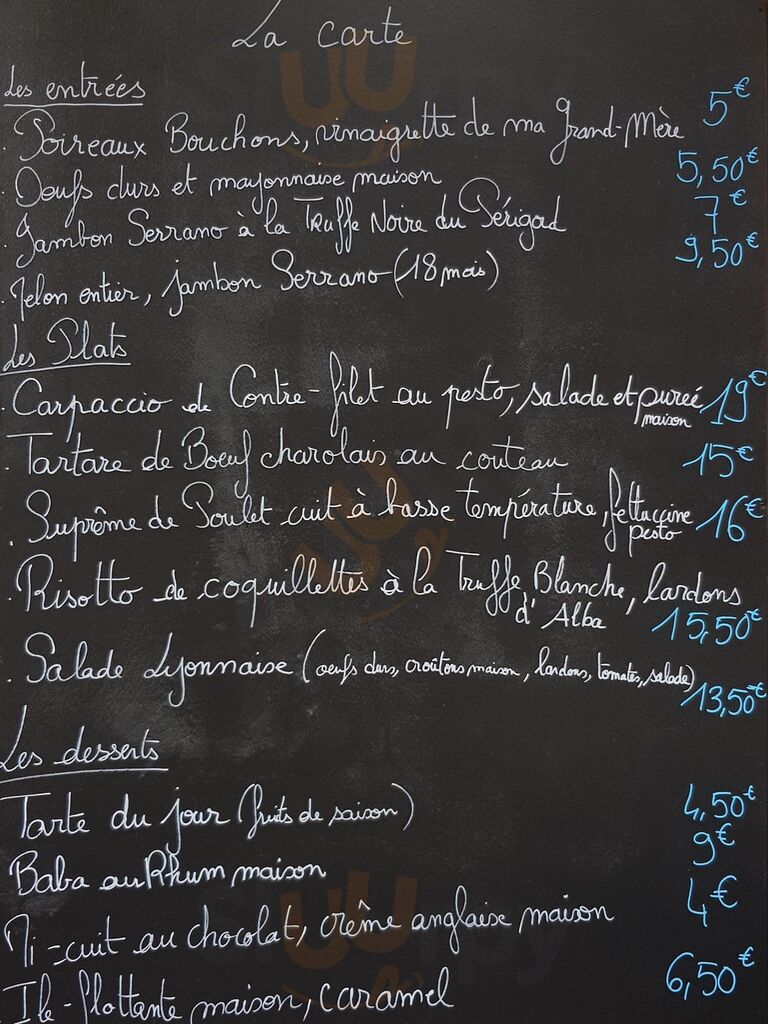 La carte
Les entrées
. Poireaux Bouchons, vinaigrette de ma Grand-Mère 5€
. Oeufs durs et mayonnaise maison 5,50€
. Jambon Serrano à la Truffe Noire du Périgod 7€
. Melon entier, jambon Serrano (18 mois) 9,50€
Les Plats
. Carpaccio de Contre-filet au pesto, salade et purée 19€
maison
. Tartare de Boeuf charolais au couteau 15€
. Suprême de Poulet cuit à basse température, fettuccine 16€
pesto
. Risotto de coquillettes à la Truffe Blanche, lardons
d'Alba 15,50€
. Salade Lyonnaise (oeufs durs, croûtons maison, lardons, tomates, salade)
13,50€
Les desserts
Tarte du jour (fruits de saison) 4,50€
Baba au Rhum maison 9€
Mi-cuit au chocolat, crème anglaise maison 4€
Ile-flottante maison, caramel 6,50€